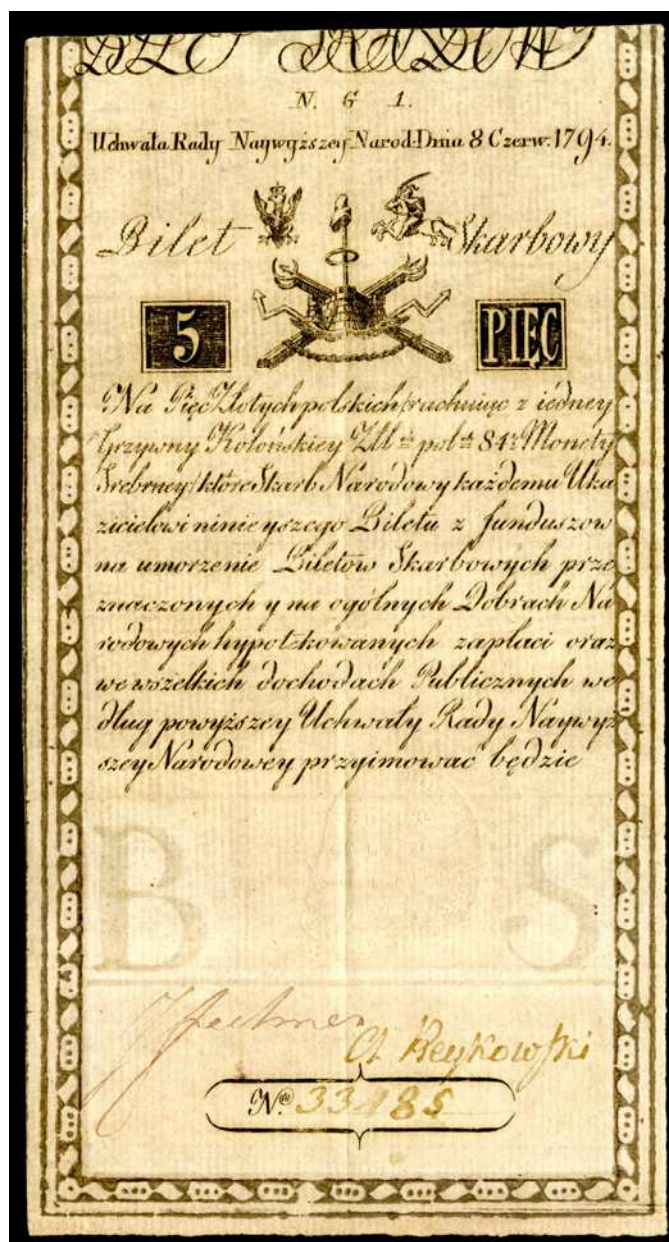 BILET SKARBOWY
N. G 1.
Uchwała Rady Naywyższey Narod: Dnia 8 Czerw: 1794.
Bilet Skarbowy
5 PIĘĆ
Na Pięć Złotych polskich (rachuiąc z iedney
Grzywny Kolońskiey Zł pol 84½ Monety
Srebrney) które Skarb Narodowy każdemu Uka
zicielowi ninieyszego Biletu z funduszow
na umorzenie Biletów Skarbowych prze
znaczonych y na ogólnych Dobrach Na
rodowych hypotekowanych zapłaci oraz
we wszelkich dochodach Publicznych we
dług powyższey Uchwały Rady Naywyż
szey Narodowey przyimować będzie
B S
A Reykowski
No 33485